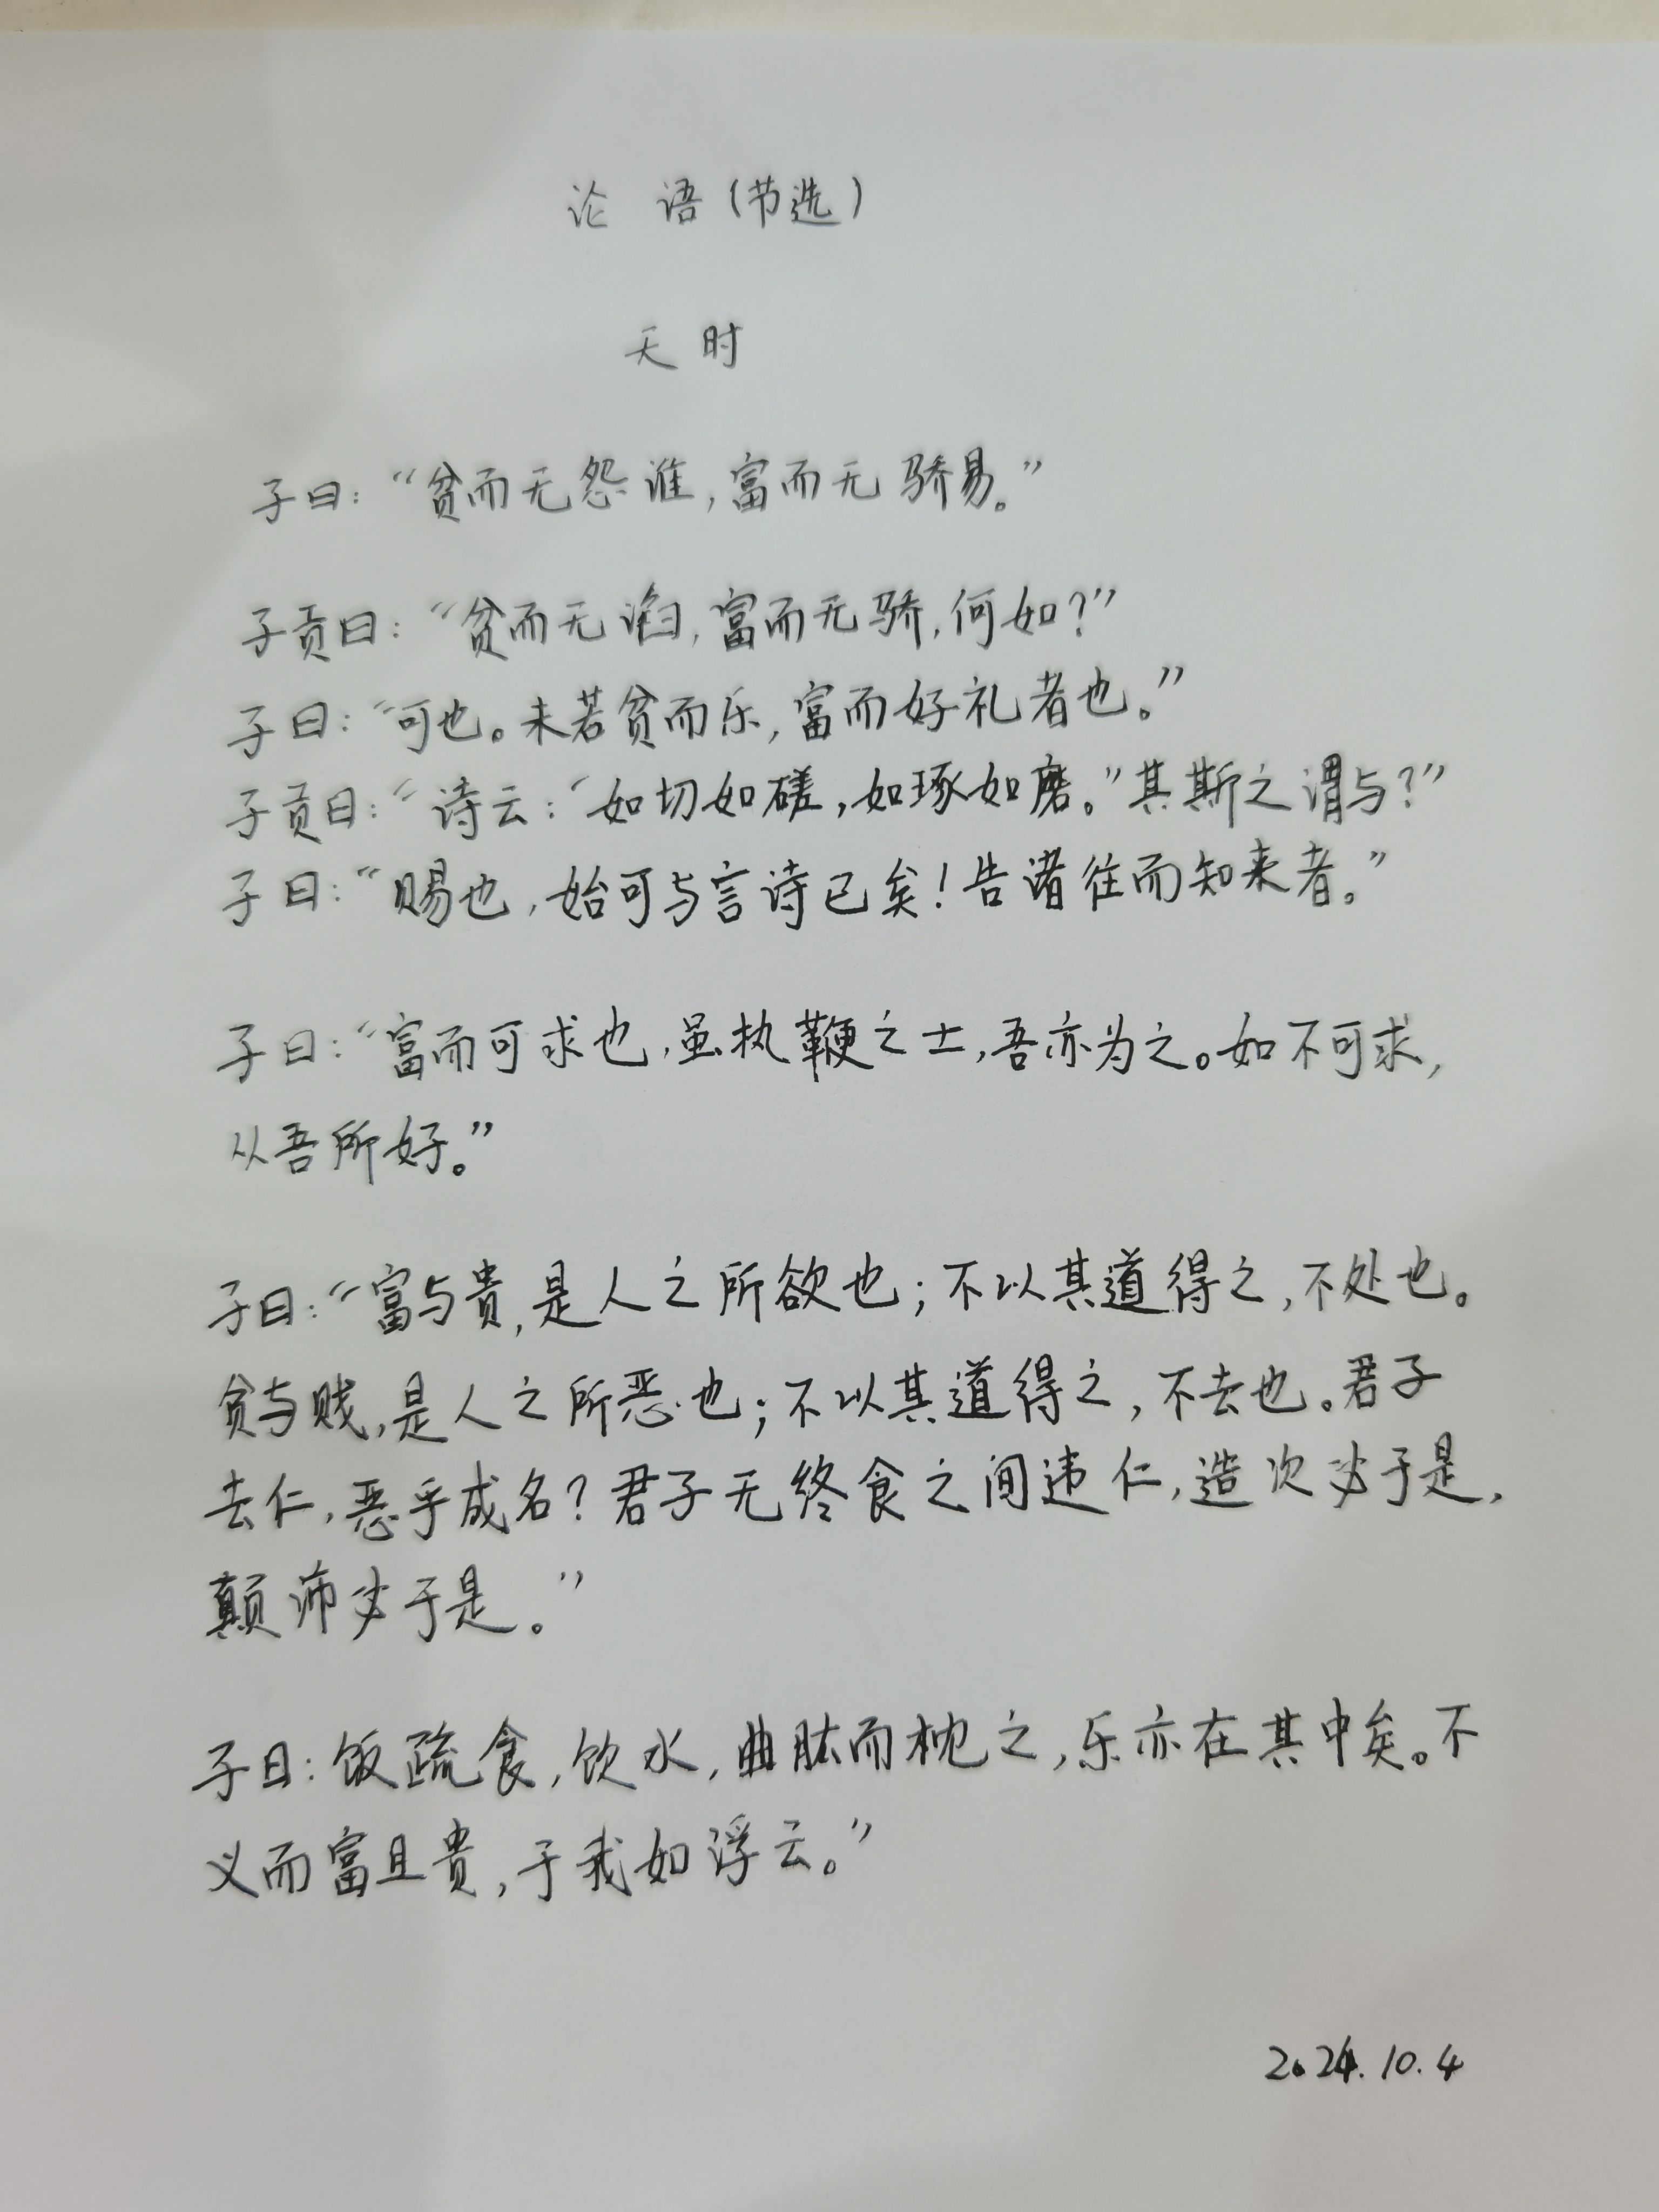 论 语（节选）
天时
子曰：“贫而无怨难，富而无骄易。”
子贡曰：“贫而无谄，富而无骄，何如？”
子曰：“可也。未若贫而乐，富而好礼者也。”
子贡曰：“诗云：“如切如磋，如琢如磨。”其斯之谓与？”
子曰：“赐也，始可与言诗已矣！告诸往而知来者。”
子曰：“富而可求也，虽执鞭之士，吾亦为之。如不可求，
从吾所好。”
子曰：“富与贵，是人之所欲也；不以其道得之，不处也。
贫与贱，是人之所恶也；不以其道得之，不去也。君子
去仁，恶乎成名？君子无终食之间违仁，造次必于是，
颠沛必于是。”
子曰：饭疏食，饮水，曲肱而枕之，乐亦在其中矣。不
义而富且贵，于我如浮云。”
2024.10.4